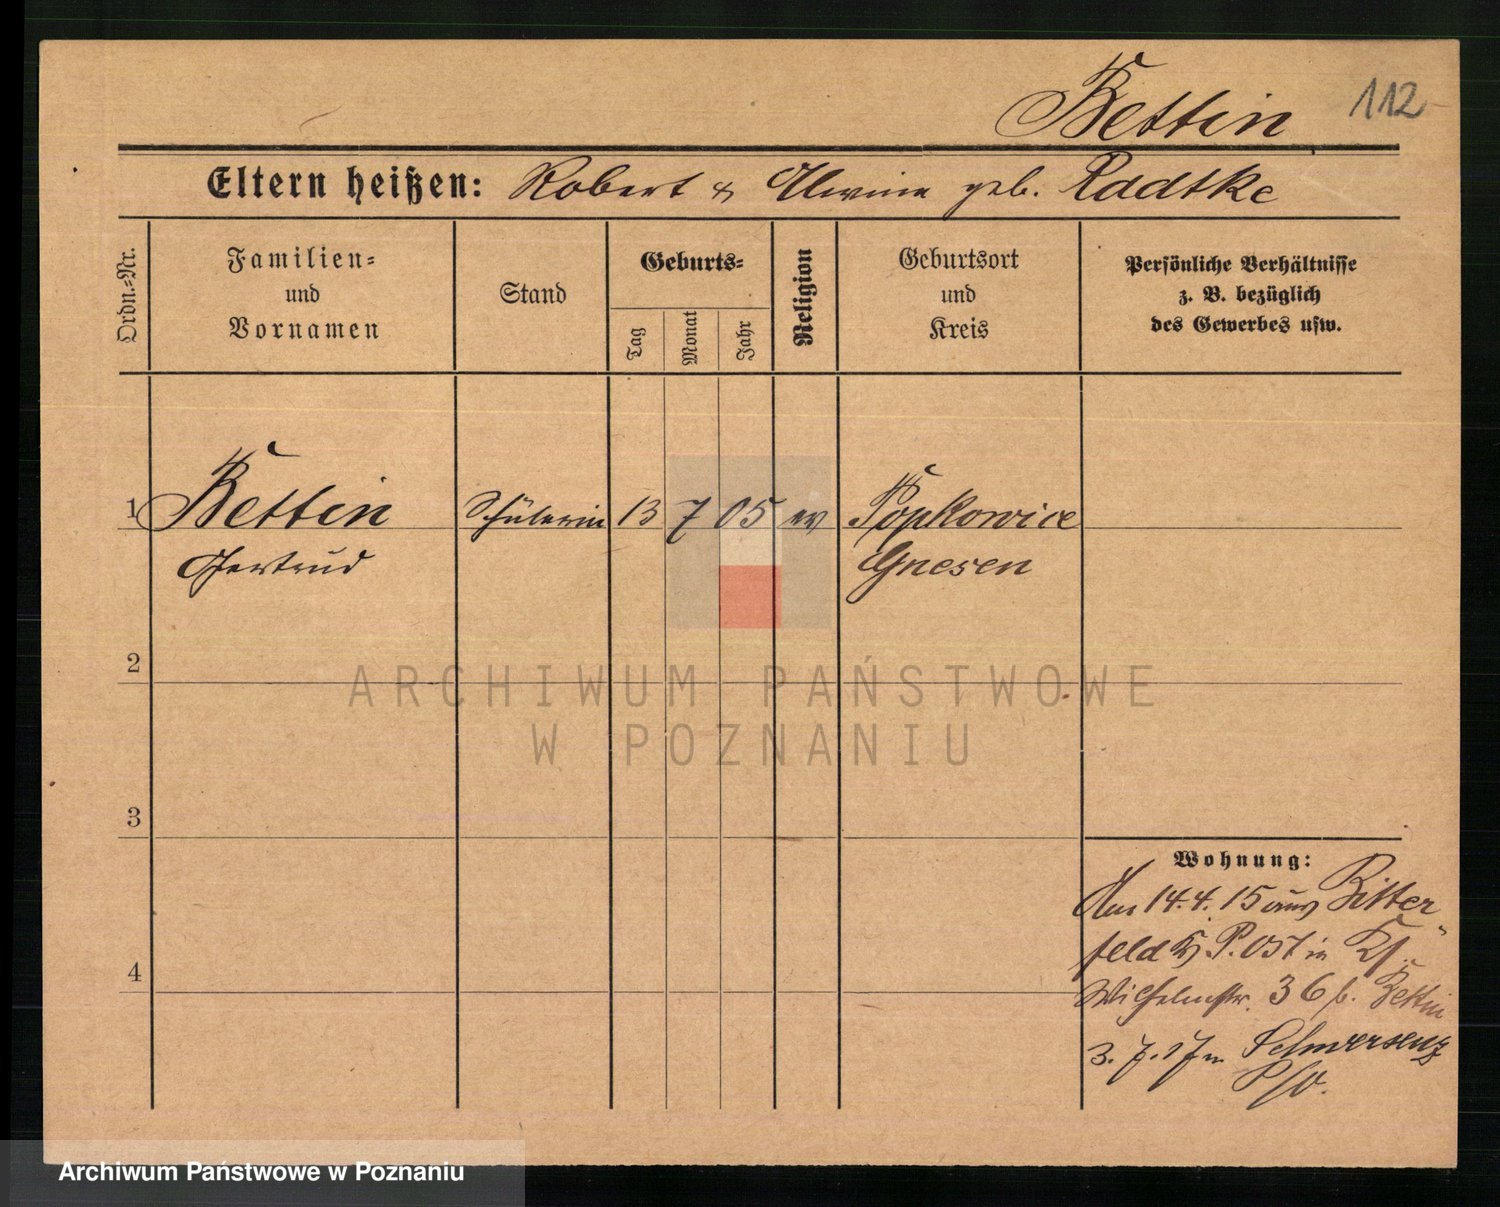 Bettin 112
Eltern heißen: Robert & Alwine geb. Radtke
Ordn.-Nr.
Familien-
und
Vornamen
Stand
Geburts-
Tag
Monat
Jahr
Religion
Geburtsort
und
Kreis
Persönliche Verhältnisse
z. B. bezüglich
des Gewerbes usw.
1 Bettin Schülerin 13 7 05 ev Popkowice
Gertrud Gnesen
2
ARCHIWUM PAŃSTWOWE
W POZNANIU
3
Wohnung:
Am 14.4.15 aus Bitter-
feld P. Ost in
4
Wilhelmstr. 36 b. Bettin
3.7.17 n Schwersenz
Archiwum Państwowe w Poznaniu